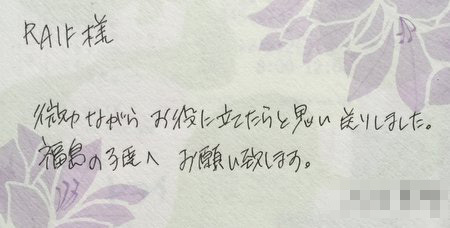 RAIF様
微力ながら お役に立てたらと思い 送りました。
福島の子達へ お願い致します。